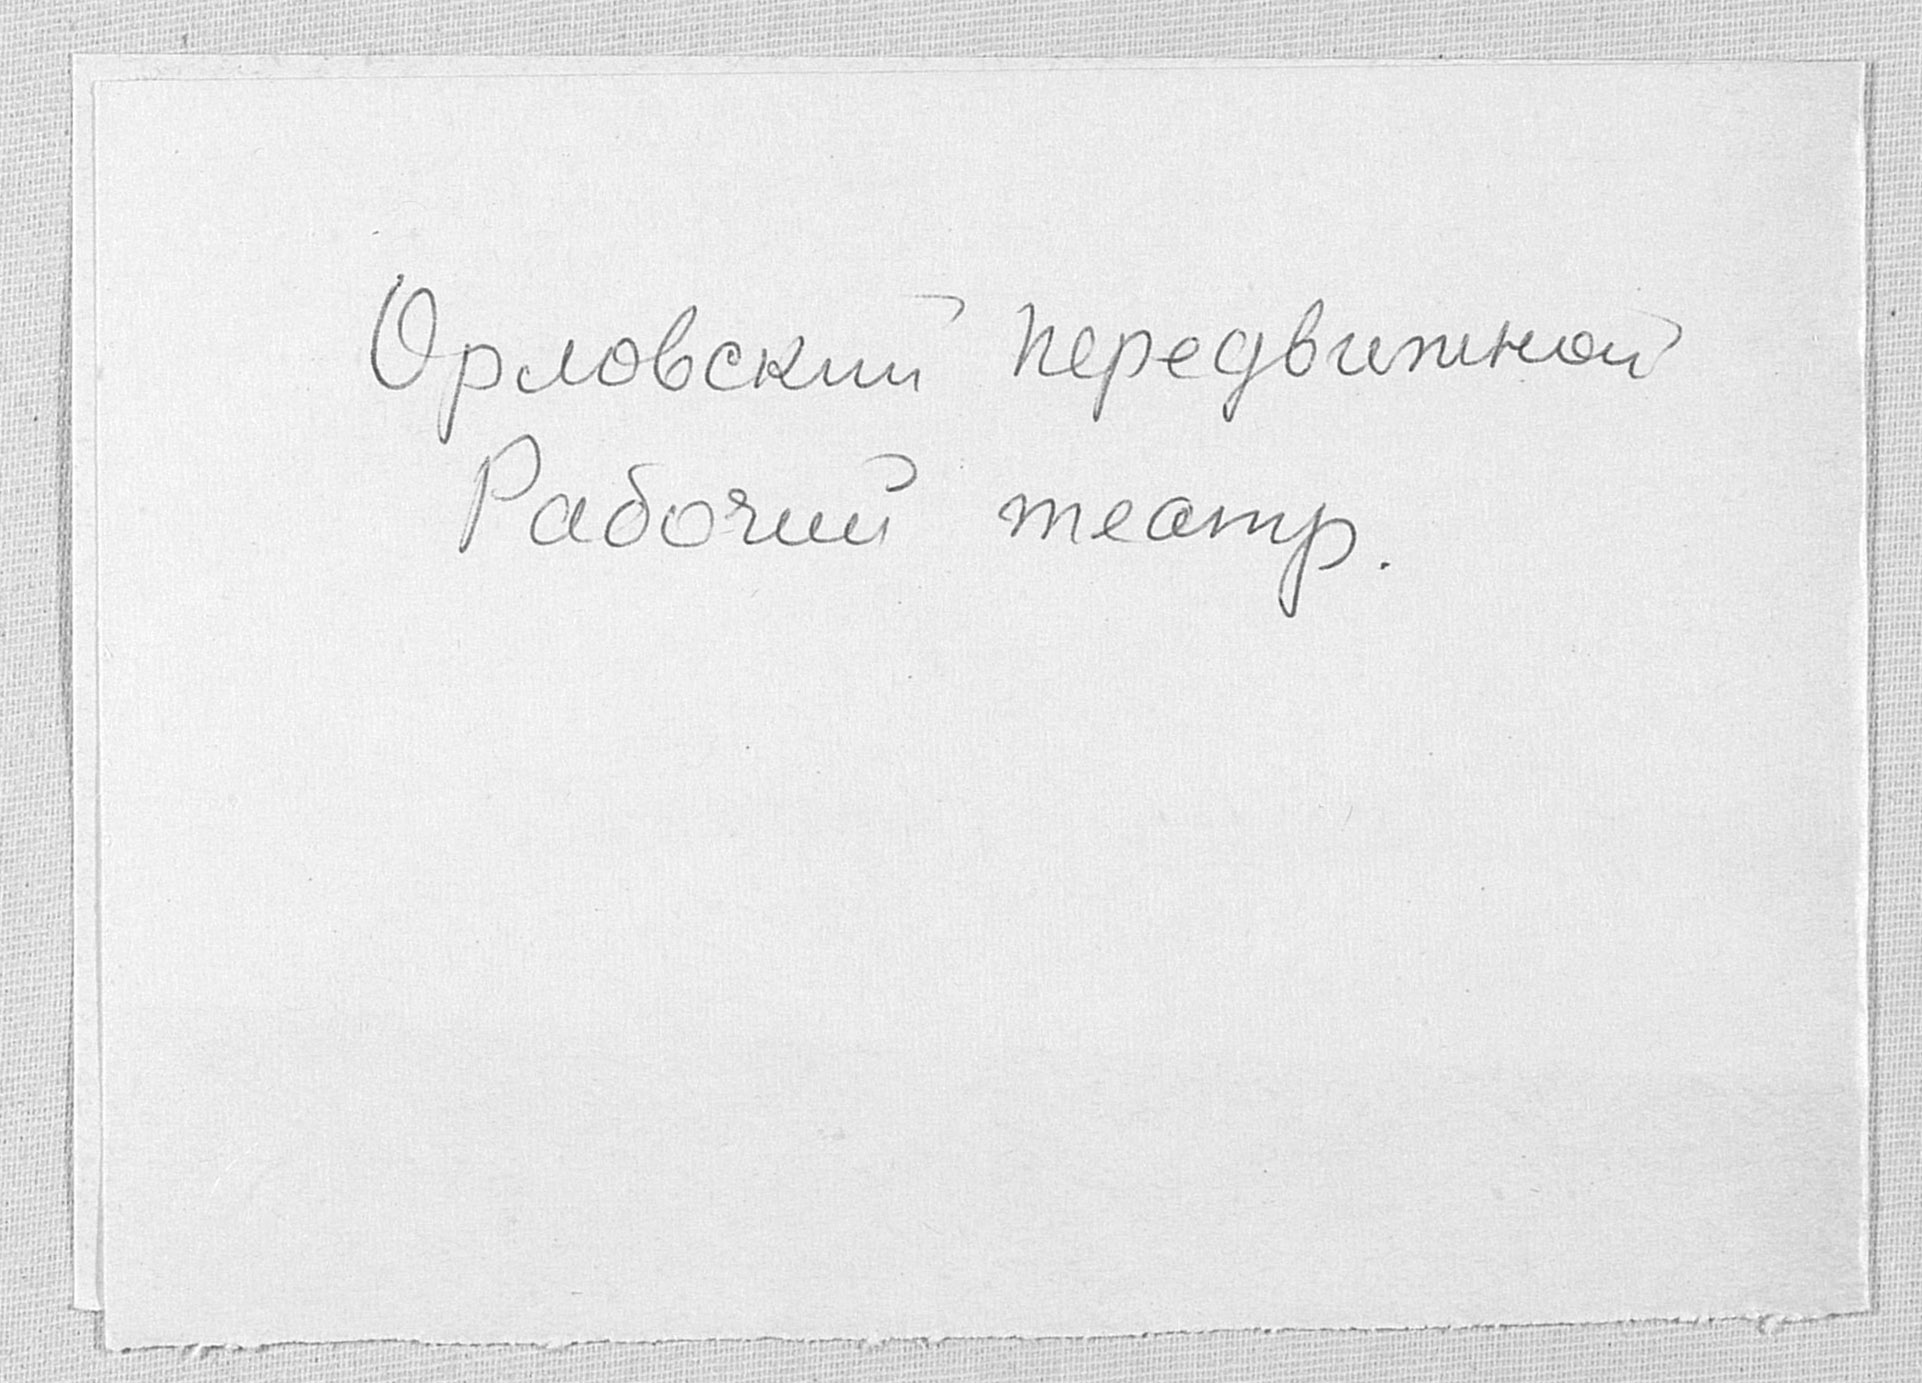 Орловский передвижной
Рабочий театр.